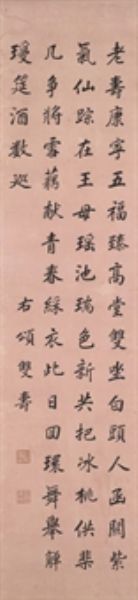 老壽康寧五福臻高堂雙坐白頭人函關紫
氣仙踪在王母瑤池瑞色新共把冰桃供槩
几爭將雪藕献青春綵衣此日回環舞舉解
瓊筵酒數巡
右頌雙壽